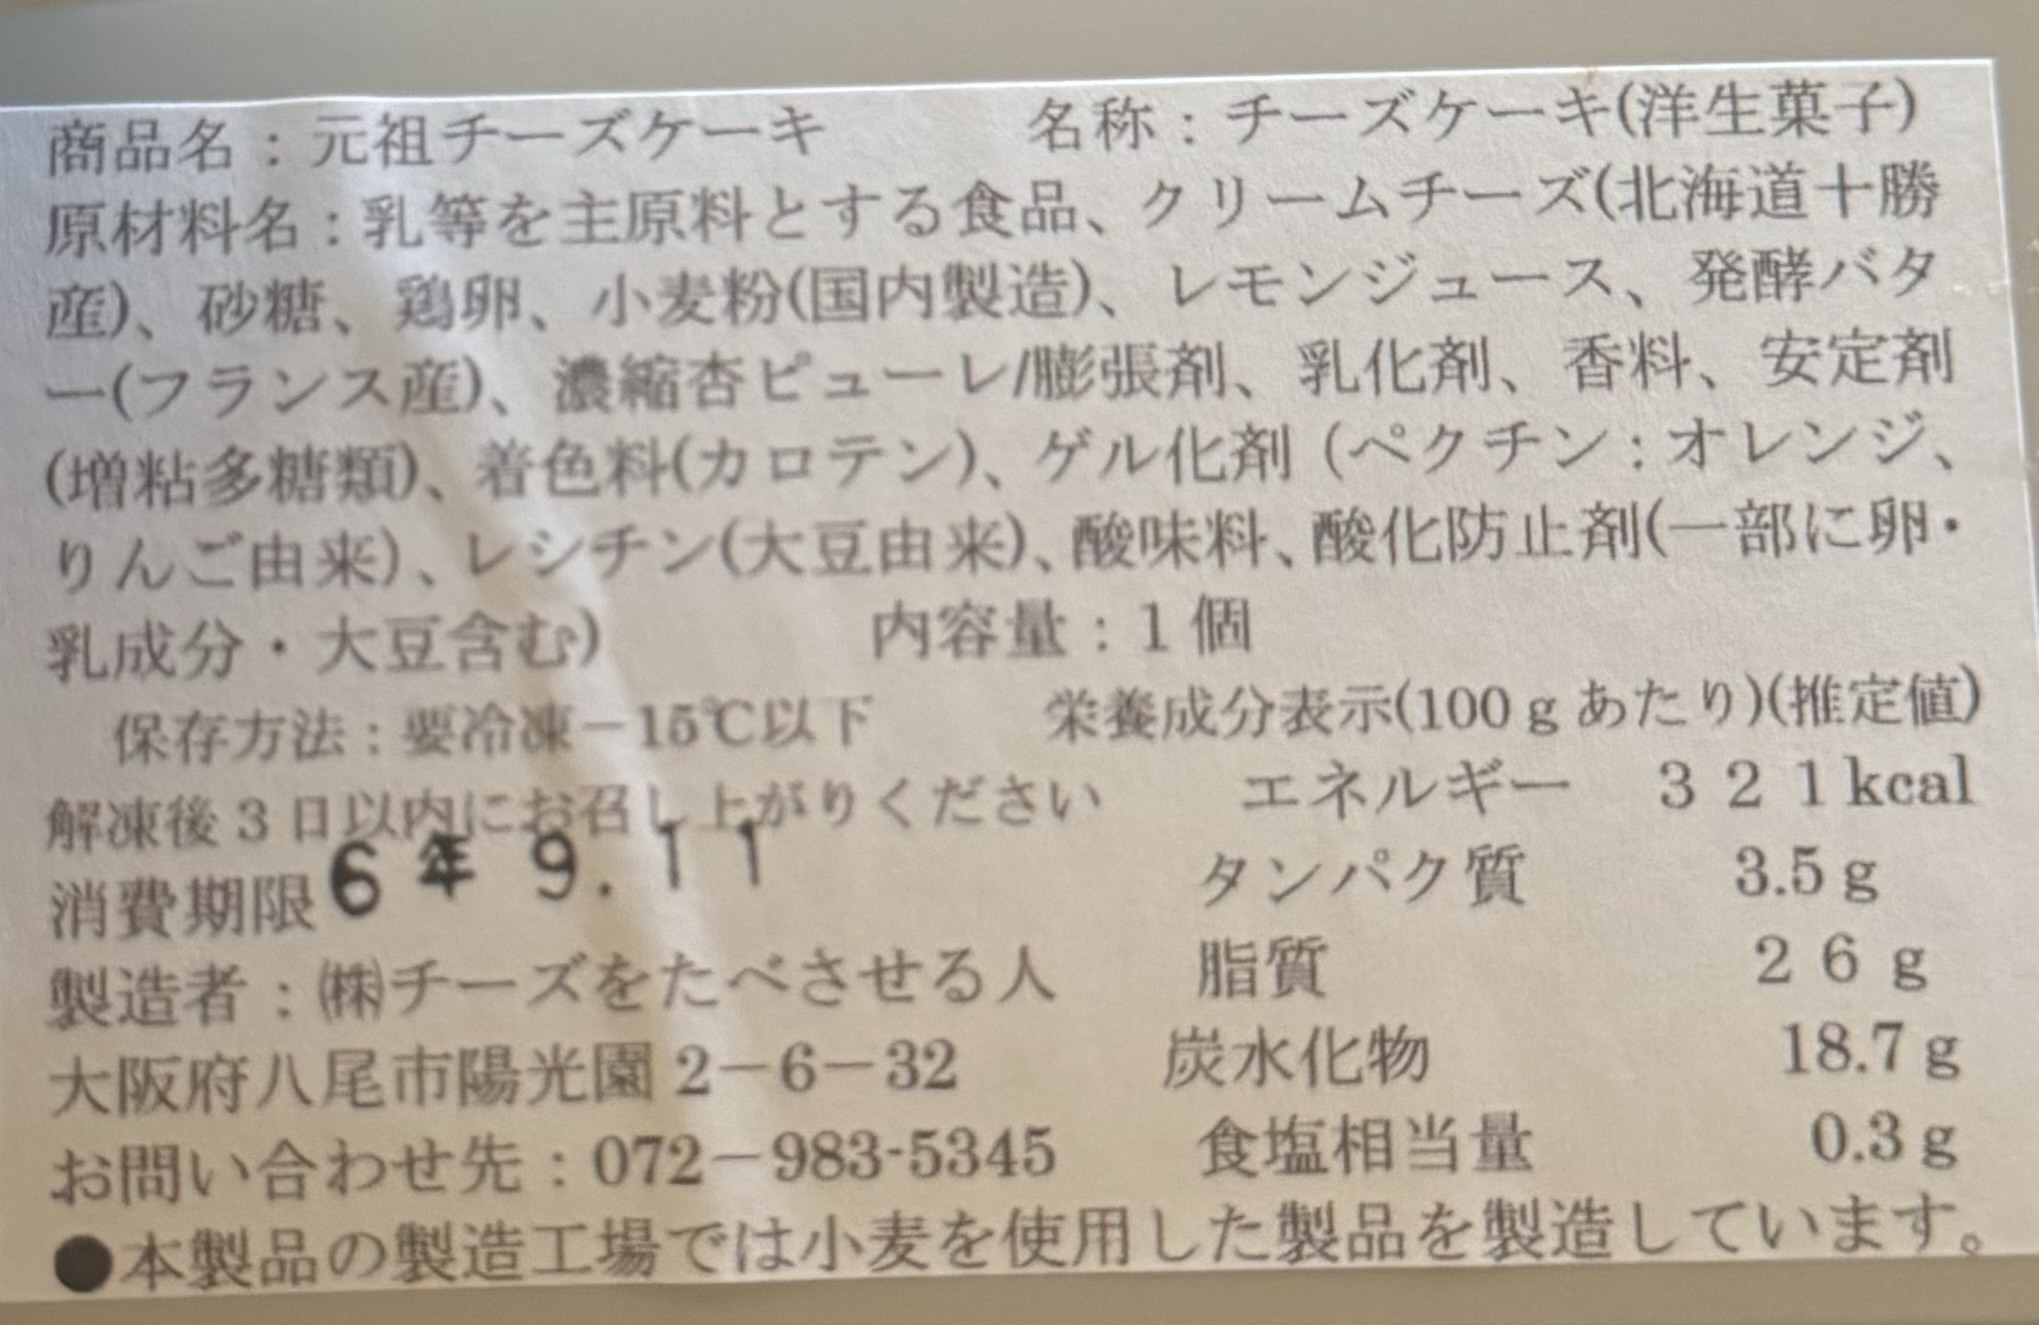 商品名：元祖チーズケーキ　名称：チーズケーキ(洋生菓子)
原材料名：乳等を主原料とする食品、クリームチーズ(北海道十勝
産)、砂糖、鶏卵、小麦粉(国内製造)、レモンジュース、発酵バタ
ー(フランス産)、濃縮杏ピューレ/膨張剤、乳化剤、香料、安定剤
(増粘多糖類)、着色料(カロテン)、ゲル化剤（ペクチン：オレンジ、
りんご由来)、レシチン(大豆由来)、酸味料、酸化防止剤(一部に卵・
乳成分・大豆含む)　内容量：1個
保存方法：要冷凍－15℃以下　栄養成分表示(100gあたり)(推定値)
解凍後3日以内にお召し上がりください　エネルギー　321kcal
消費期限 6年 9.11　タンパク質　3.5g
製造者：㈱チーズをたべさせる人　脂質　26g
大阪府八尾市陽光園2－6－32　炭水化物　18.7g
お問い合わせ先：072－983-5345　食塩相当量　0.3g
●本製品の製造工場では小麦を使用した製品を製造しています。